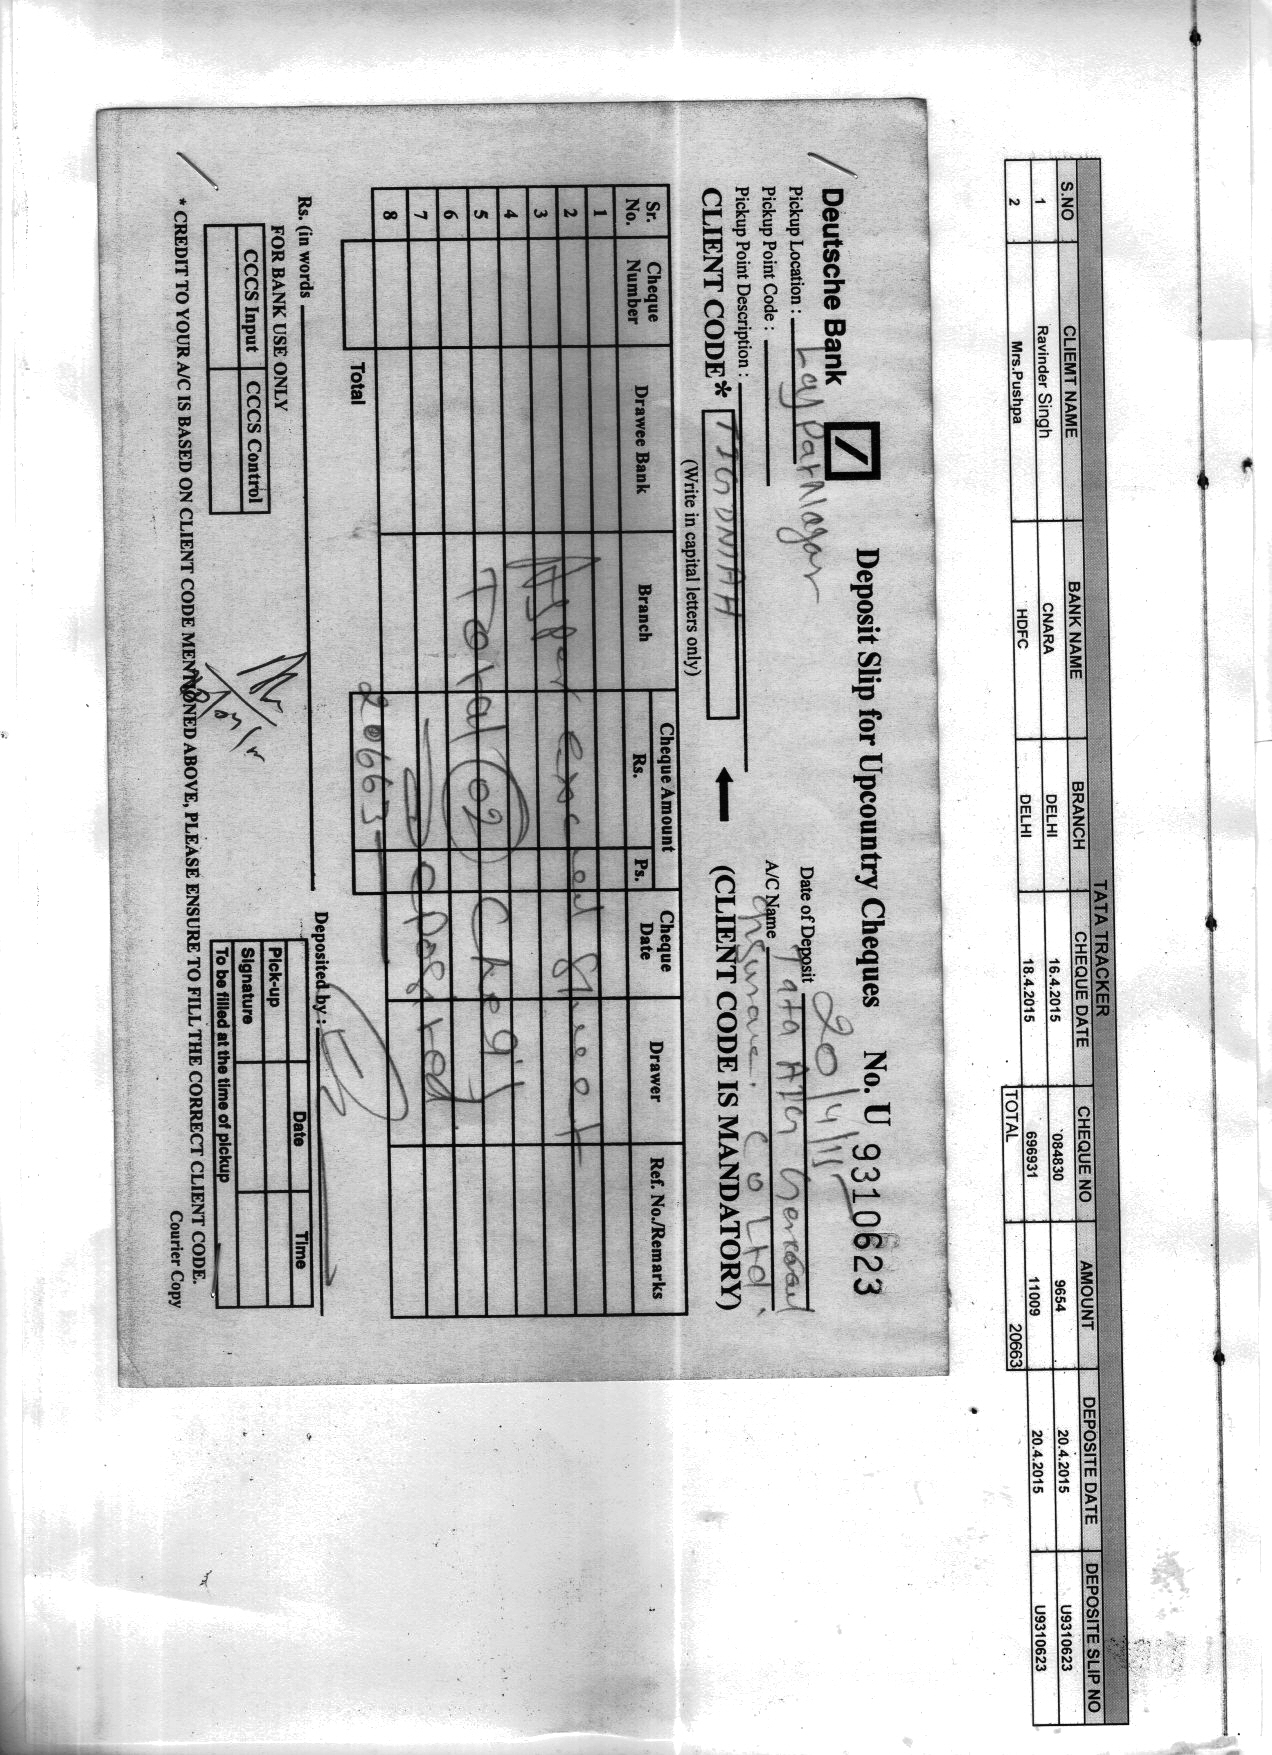 TATA TRACKER
S.NO CLIEMT NAME BANK NAME BRANCH CHEQUE DATE CHEQUE NO AMOUNT DEPOSITE DATE DEPOSITE SLIP NO
1 Ravinder Singh CNARA DELHI 16.4.2015 '084830 9654 20.4.2015 U9310623
2 Mrs.Pushpa HDFC DELHI 18.4.2015 696931 11009 20.4.2015 U9310623
TOTAL 20663
Deutsche Bank Deposit Slip for Upcountry Cheques No. U 9310623
Pickup Location : Lajpat Nagar Date of Deposit 20/4/15
Pickup Point Code : A/C Name Tata AIG General
Pickup Point Description : Co Ltd.
CLIENT CODE* (CLIENT CODE IS MANDATORY)
(Write in capital letters only)
Sr. No. Cheque Number Drawee Bank Branch Cheque Amount Rs. Ps. Cheque Date Drawer Ref. No./Remarks
1
2
3
4
5
6
7
8
As per excel sheet
Total 02 Chq's
Total 20663
Rs. (in words
Deposited by :
FOR BANK USE ONLY
CCCS Input CCCS Control
Date Time
Pick-up
Signature
To be filled at the time of pickup
* CREDIT TO YOUR A/C IS BASED ON CLIENT CODE MENTIONED ABOVE, PLEASE ENSURE TO FILL THE CORRECT CLIENT CODE.
Courier Copy